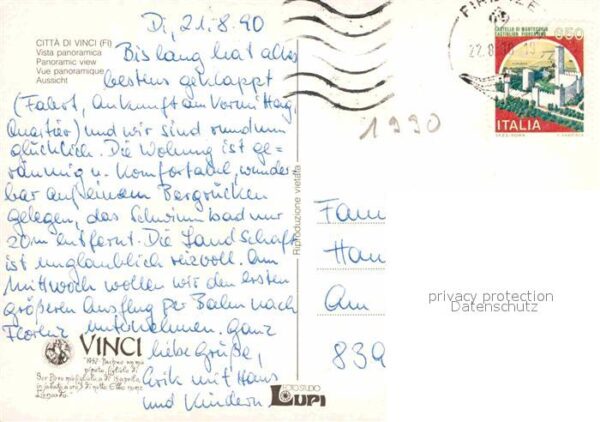 Di, 21.8.90
CITTÀ DI VINCI (FI)
Vista panoramica
Panoramic view
Vue panoramique
Aussicht
Bislang hat alles
bestens geklappt
(Fahrt, Ankunft am Vormittag,
Quartier) und wir sind rundum
glücklich. Die Wohnung ist ge-
räumig u. komfortabel, wunder-
bar auf einem Bergrücken
gelegen, das Schwimmbad nur
20m entfernt. Die Landschaft
ist unglaublich reizvoll. Am
Mittwoch wollen wir den ersten
größeren Ausflug per Bahn nach
Florenz unternehmen. Ganz
liebe Grüße,
mit Hans
und Kindern
VINCI
FOTO STUDIO
LUPI
Riproduzione vietata
FIRENZE
22.8
1990
CASTELLO DI MONTECCHIO
CASTIGLION FIORENTINO
650
ITALIA
Fam
Han
Am
839
privacy protection
Datenschutz